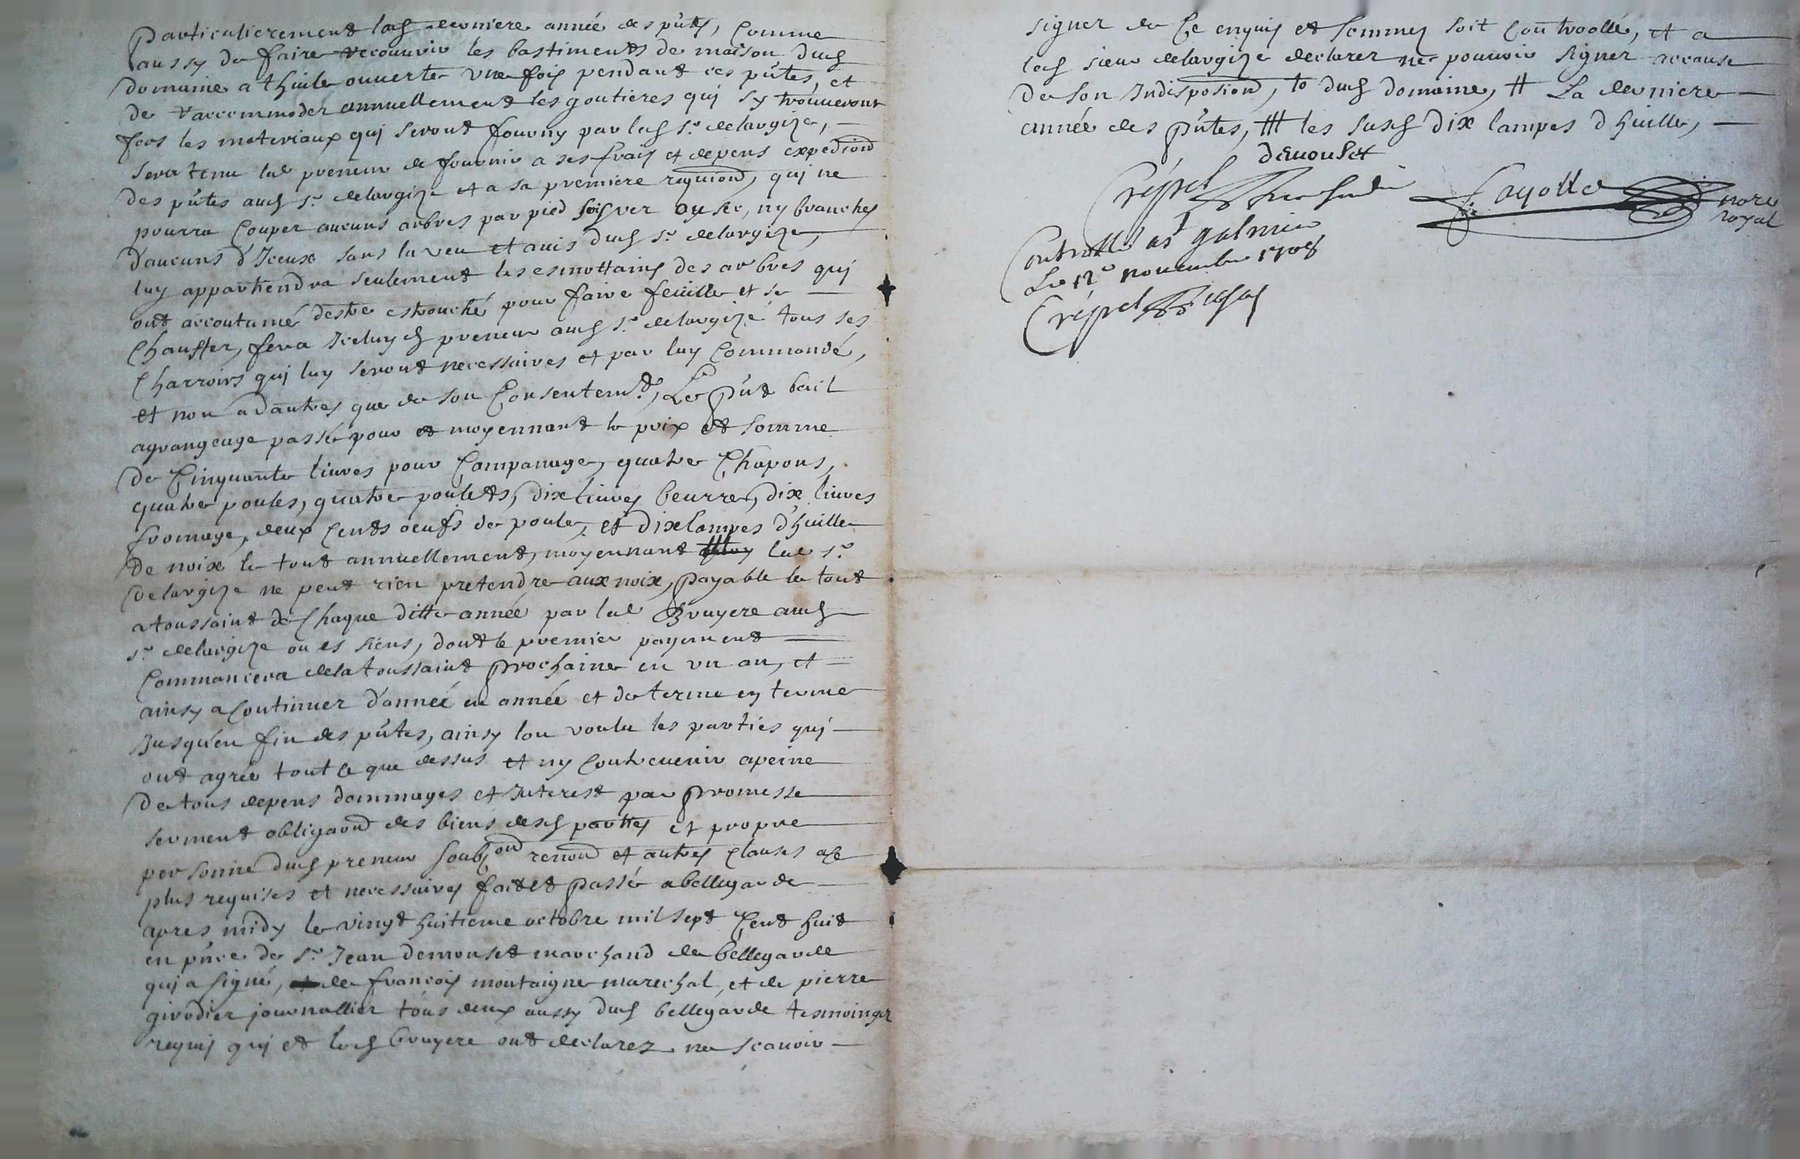 particulierement lad derniere année des p̃ntes, comme
aussy de faire recouvrir les bastiments de maison dud
domaine a thuile ouverte une fois pendant ces p̃ntes, et
de raccommoder annuellement les goutieres qui sy trouveront
les materiaux qui seront fourny par led sr delargize,
sera tenu led preneur de fournir a ses frais et depens expedition
des p̃ntes aud sr delargize et a sa premiere requion, qui ne
pourra couper aucuns arbres par pied soisver ou sec, ny branches
d'aucuns d'Iceux sans la veu et avis dud sr delargize,
luy appartiendra seulement les esmottains des arbres qui
ont accoutumé destre estrouché pour faire feuille et se
chauffer, fera Iceluy d preneur aud sr delargize tous ses
charroirs qui luy seront necessaires et par luy commandé,
et non a d'autres que de son consentemt, Le p̃nt bail
agrangeage passé pour et moyennant le prix et somme
de cinquante livres pour companage, quatre chapons,
quatre poules, quatre poulets, dix livres beurre, dix livres
fromage, deux cents oeufs de poule, et dix lampes d'huille
de noix le tout annuellement, moyennant led sr
delargize ne peut rien pretendre aux noix, payable le tout
a toussaint de chaque ditte année par led Bruyere aud
sr delargize ou es siens, dont le premier payement
commancera de la toussaint prochaine en un an, et
ainsy a continuer d'année en année et de terme en terme
Jusqu'en fin des p̃ntes, ainsy lon voulu les parties qui
ont agréé tout ce que dessus et ny contrevenir a peine
de tous depens dommages et Interest par promesse
serment obligaond des biens desd parties et propre
personne dud preneur soubond renond et autres clauses a ce
plus requises et necessaires fait et passé a bellegarde
apres midy le vingt huitieme octobre mil sept cent huit
en p̃nce de sr Jean demouset marchand de bellegarde
qui a signé, de françois montaigne marechal, et de pierre
girodier journallier tous deux aussy dud bellegarde tesmoings
requis qui et led bruyere ont declarez ne scavoir
signer de ce enquis et sommez soit controollé, et a
led sieur delargize declarer ne pouvoir signer a cause
de son Indisposiond, to dud domaine, # La derniere
année des p̃ntes, ### les susd dix lampes d'huille,
demouset
Fayolle nore royal
Controllé a st galmier
Le 12e novembre 1708